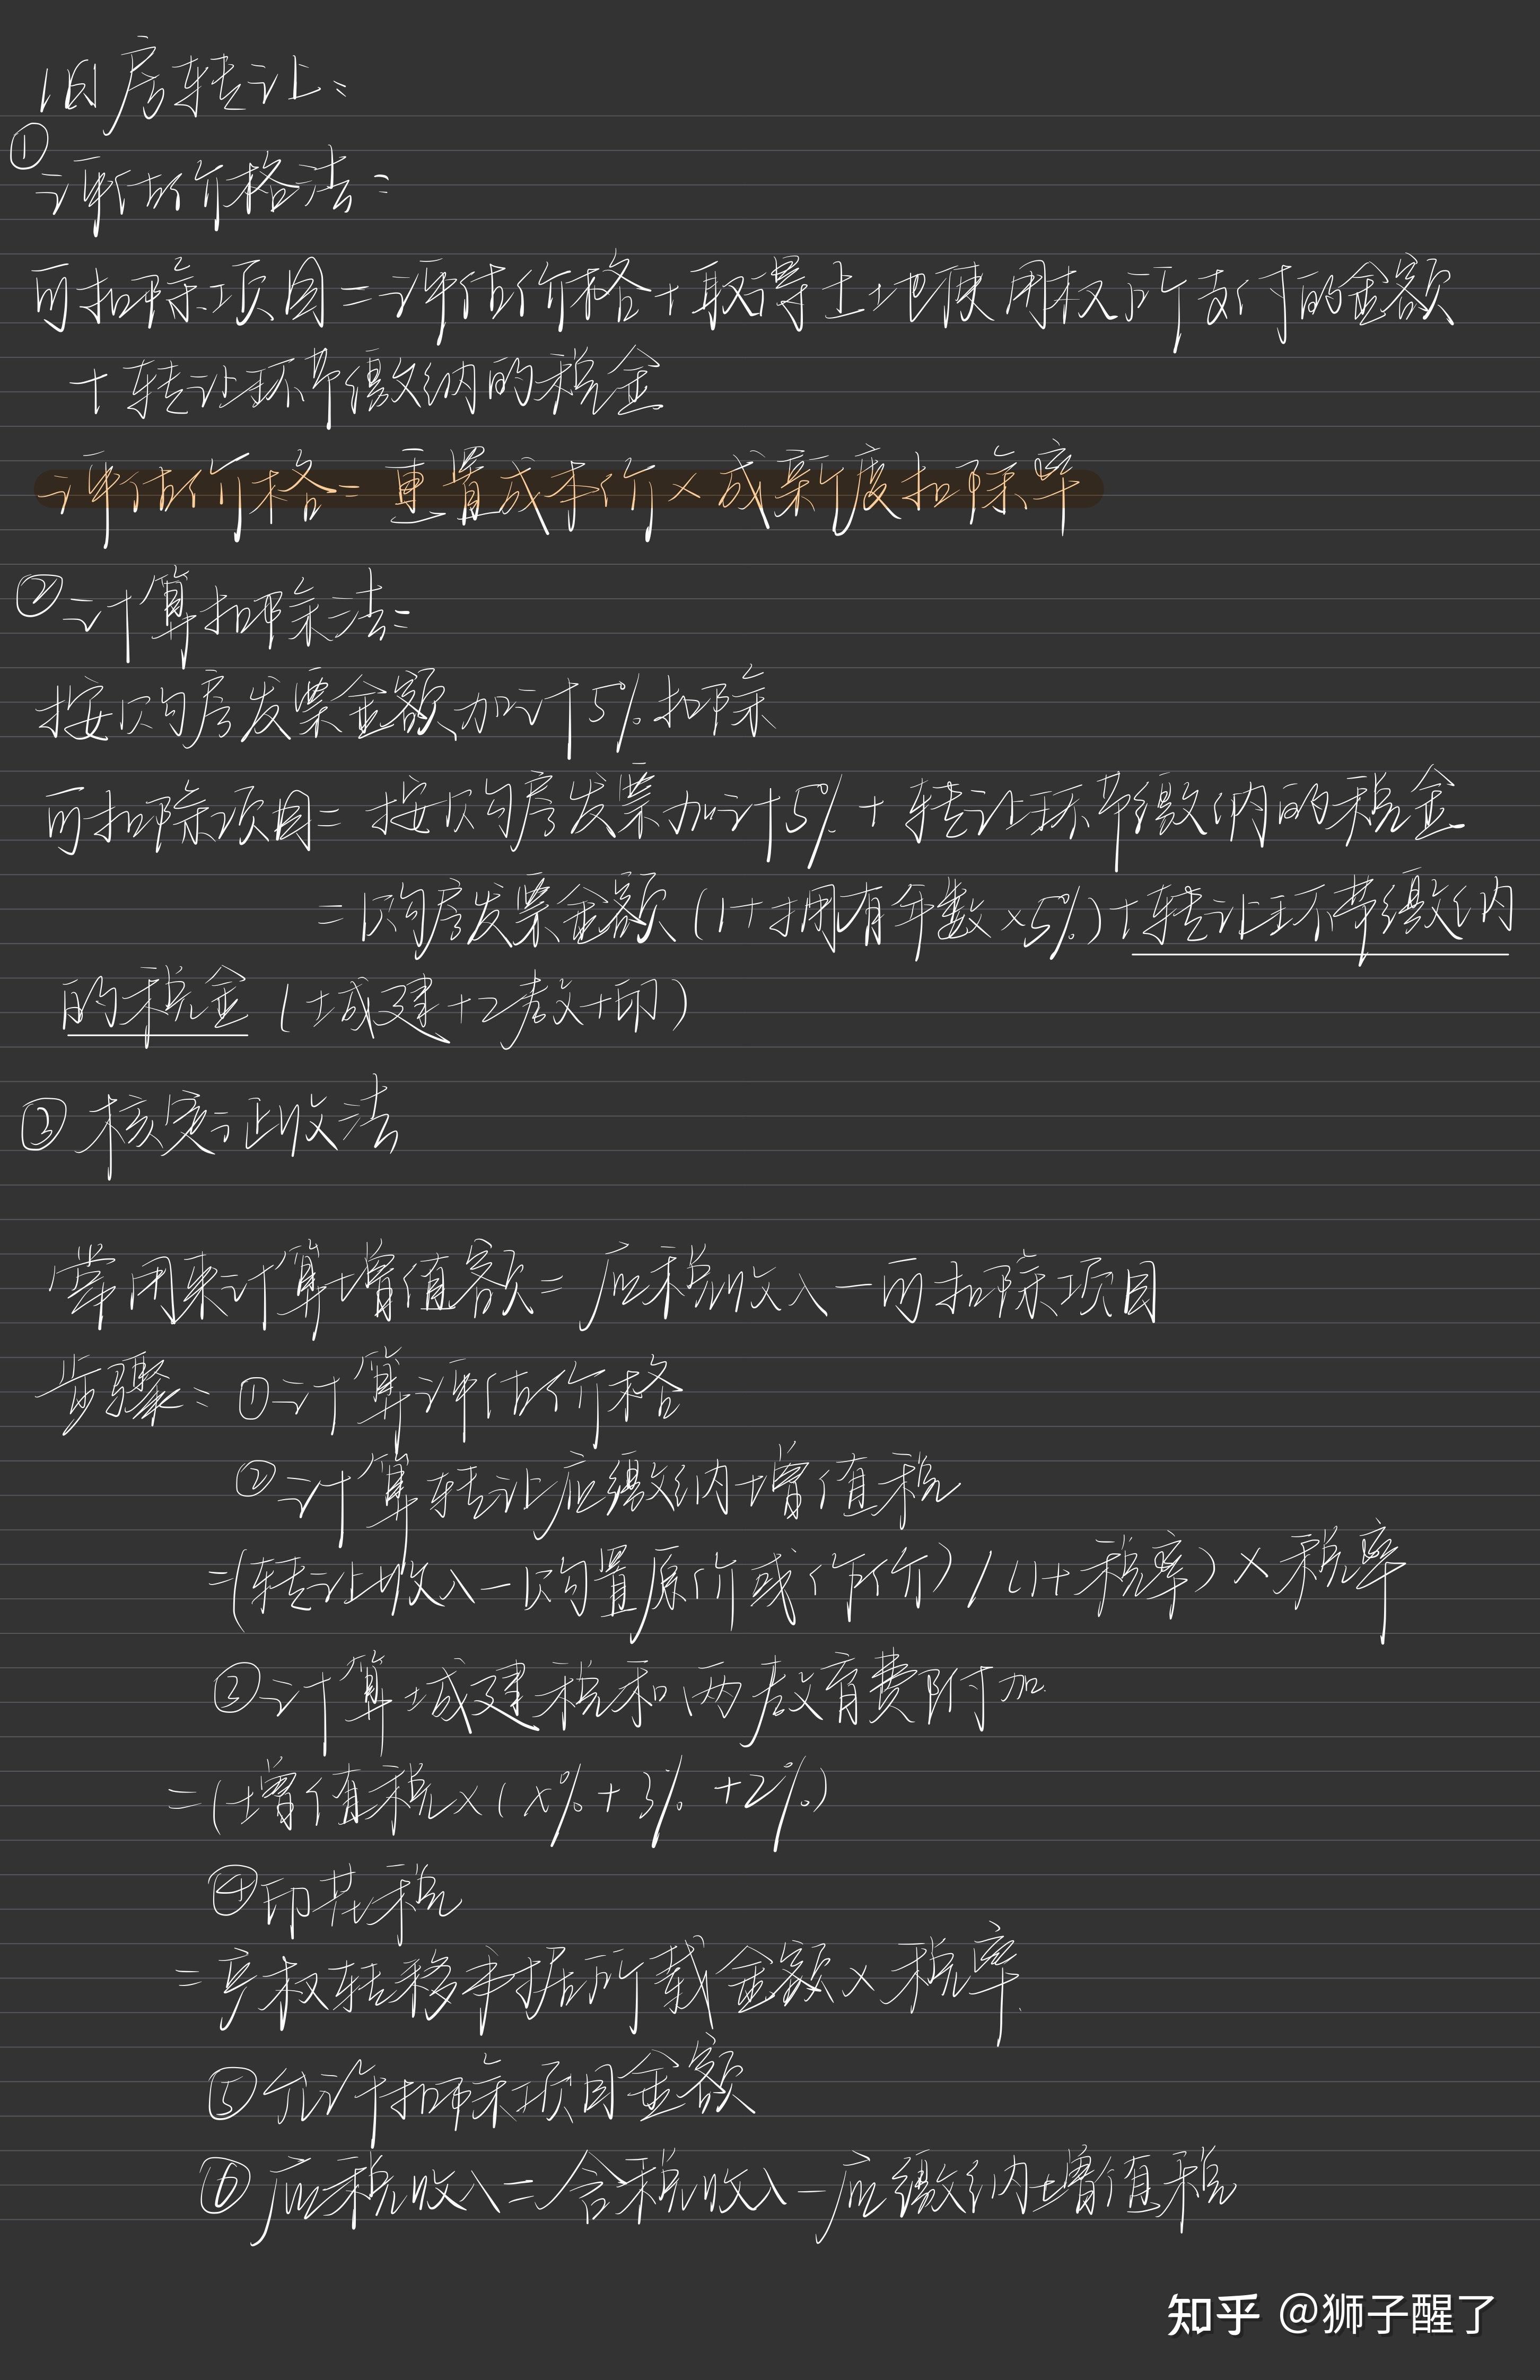 旧房转让：
①
评估价格法：
可扣除项目=评估价格+取得土地使用权所支付的金额
+转让环节缴纳的税金
评估价格=重置成本价×成新度扣除率
②计算扣除法：
按购房发票金额加计5%扣除
可扣除项目=按购房发票加计5%+转让环节缴纳的税金
=购房发票金额(1+拥有年数×5%)+转让环节缴纳
的税金(城建+2教+印)
③核定征收法
常用来计算增值额=应税收入-可扣除项目
步骤：①计算评估价格
②计算转让应缴纳增值税
=(转让收入-购置原价或作价)/(1+税率)×税率
③计算城建税和两教育费附加
=(增值税×(x%+3%+2%)
④印花税
=产权转移书据所载金额×税率
⑤允许扣除项目金额
⑥应税收入=含税收入-应缴纳增值税
知乎 @狮子醒了